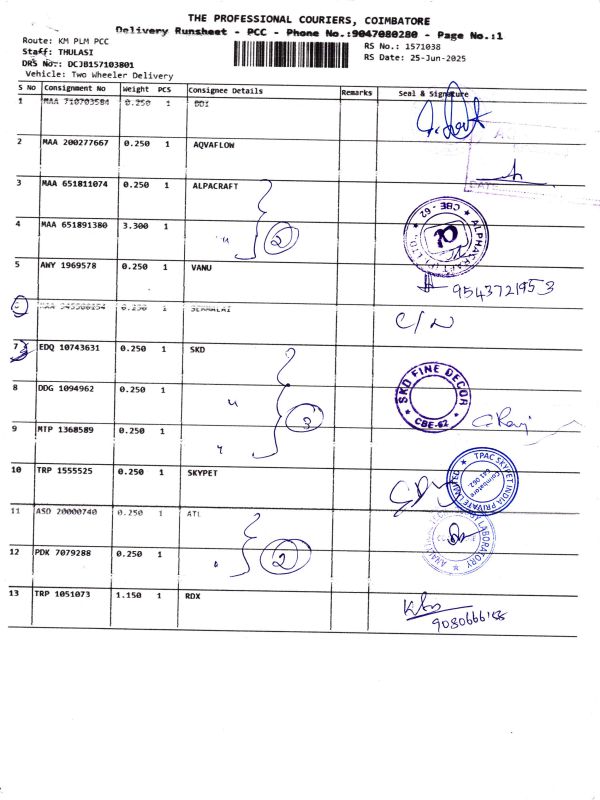 THE PROFESSIONAL COURIERS, COIMBATORE
Delivery Runsheet - PCC - Phone No.:9047080280 - Page No.:1
Route: KM PLM PCC
RS No.: 1571038
Staff: THULASI
RS Date: 25-Jun-2025
DRS No.: DCJB157103801
Vehicle: Two Wheeler Delivery
S No Consignment No Weight PCS Consignee Details Remarks Seal & Signature
1 MAA 710703584 0.250 1 DDI
2 MAA 200277667 0.250 1 AQVAFLOW
DATE
3 MAA 651811074 0.250 1 ALPACRAFT
4 MAA 651891380 3.300 1 " 2
ALPHACRAFT (P) LTD. CBE - 62
5 AWY 1969578 0.250 1 VANU
9543721953
6 0.250 1
C/N
7 EDQ 10743631 0.250 1 SKD
SKD FINE DECOR CBE-62
8 DDG 1094962 0.250 1 " 3
9 MTP 1368589 0.250 1 "
10 TRP 1555525 0.250 1 SKYPET
TPAC SKYPET INDIA PRIVATE LIMITED Coimbatore 641 062.
11 ASO 20000740 0.250 1 ATL
LABORATORY
12 PDK 7079288 0.250 1 " 2
13 TRP 1051073 1.150 1 RDX